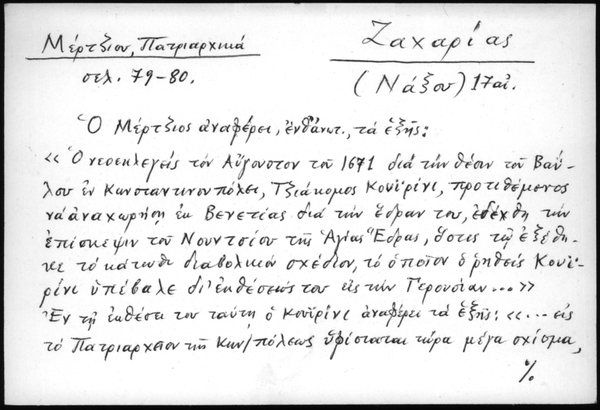 Μέρτζιου, Πατριαρχικά
σελ. 79-80.
Ζαχαρίας
(Νάξου) 17 αἰ.
Ὁ Μέρτζιος ἀναφέρει, ἔνθ' ἀνωτ., τά ἑξῆς:
«Ὁ νεοεκλεγείς τόν Αὔγουστον τοῦ 1671 διά τήν θέσιν τοῦ Βαΐ-
λου ἐν Κωνσταντινουπόλει, Τζιάκομος Κουϊρίνι, προτιθέμενος
νά ἀναχωρήσῃ ἐκ Βενετίας διά τήν ἕδραν του, ἐδέχθη τήν
ἐπίσκεψιν τοῦ Νουντσίου τῆς Ἁγίας Ἕδρας, ὅστις τῷ ἐξέθη-
κε τό κάτωθι διαβολικόν σχέδιον, τό ὁποῖον ὁ ρηθείς Κουϊ-
ρίνι ὑπέβαλε δι' ἐκθέσεώς του εἰς τήν Γερουσίαν...»
Ἐν τῇ ἐκθέσει του ταύτῃ ὁ Κουϊρίνι ἀναφέρει τά ἑξῆς: «... εἰς
τό Πατριαρχεῖον τῆς Κων/πόλεως ὑφίσταται τώρα μέγα σχίσμα,
%